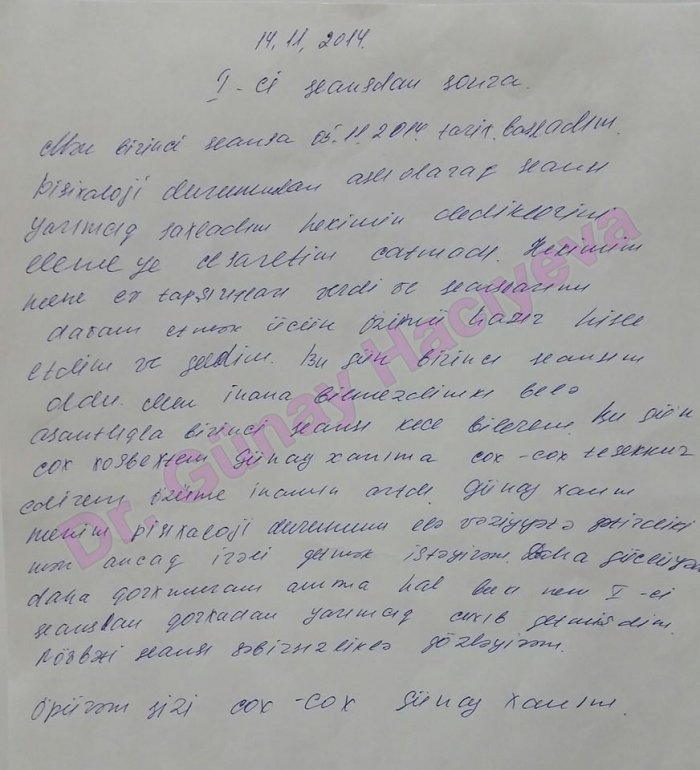 14.11.2014.
I-ci seansdan sonra.
Mən birinci seansa 05.11.2014 tarix. başladım.
Pisixaloji durumundan aslı olaraq seansı
yarımcıq saxladım həkimin dediklərini
eləməyə cəsarətim çatmadı. Həkimim
mənə ev tapşırıqları verdi və seanslarımı
davam etmək üçün özümü hazır hiss
etdim və gəldim. Bu gün birinci seansım
oldu. Mən inana bilməzdimki belə
asantlıqla birinci seansı keçə bilərəm. Bu gün
çox xoşbəxtəm Günay xanıma çox-çox təşəkkür
edirəm özümə inamım artdı. Günay xanım
mənim pisixaloji durumumu elə vəziyyətə gətirdiki
mən ancaq irəli getmək istəyirəm. Daha güclüyəm
daha qorxmuram amma hal buki mən I-ci
seansdan qorxudan yarımcıq çıxıb getmişdim.
Növbəti seansı səbirsizliklə gözləyirəm.
Öpürəm sizi çox-çox Günay xanım.
Dr. Günay Hacıyeva